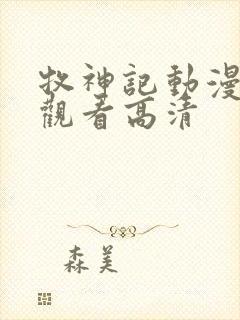 牧神記動漫
觀看高清
森美